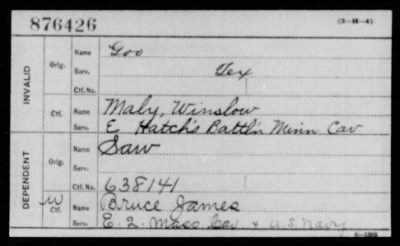 876426 (3-H-4)
INVALID
Orig. Name Goo
Serv. Tex
Ctf. No.
Ctf. Name Maly, Winslow
Serv. E Hatch's Battl'n Minn Cav
DEPENDENT
Orig. Name Saw
Serv.
Ctf. No. 638141
W Ctf. Name Bruce James
Serv. E. 2. Mass Cav. & U.S. Navy